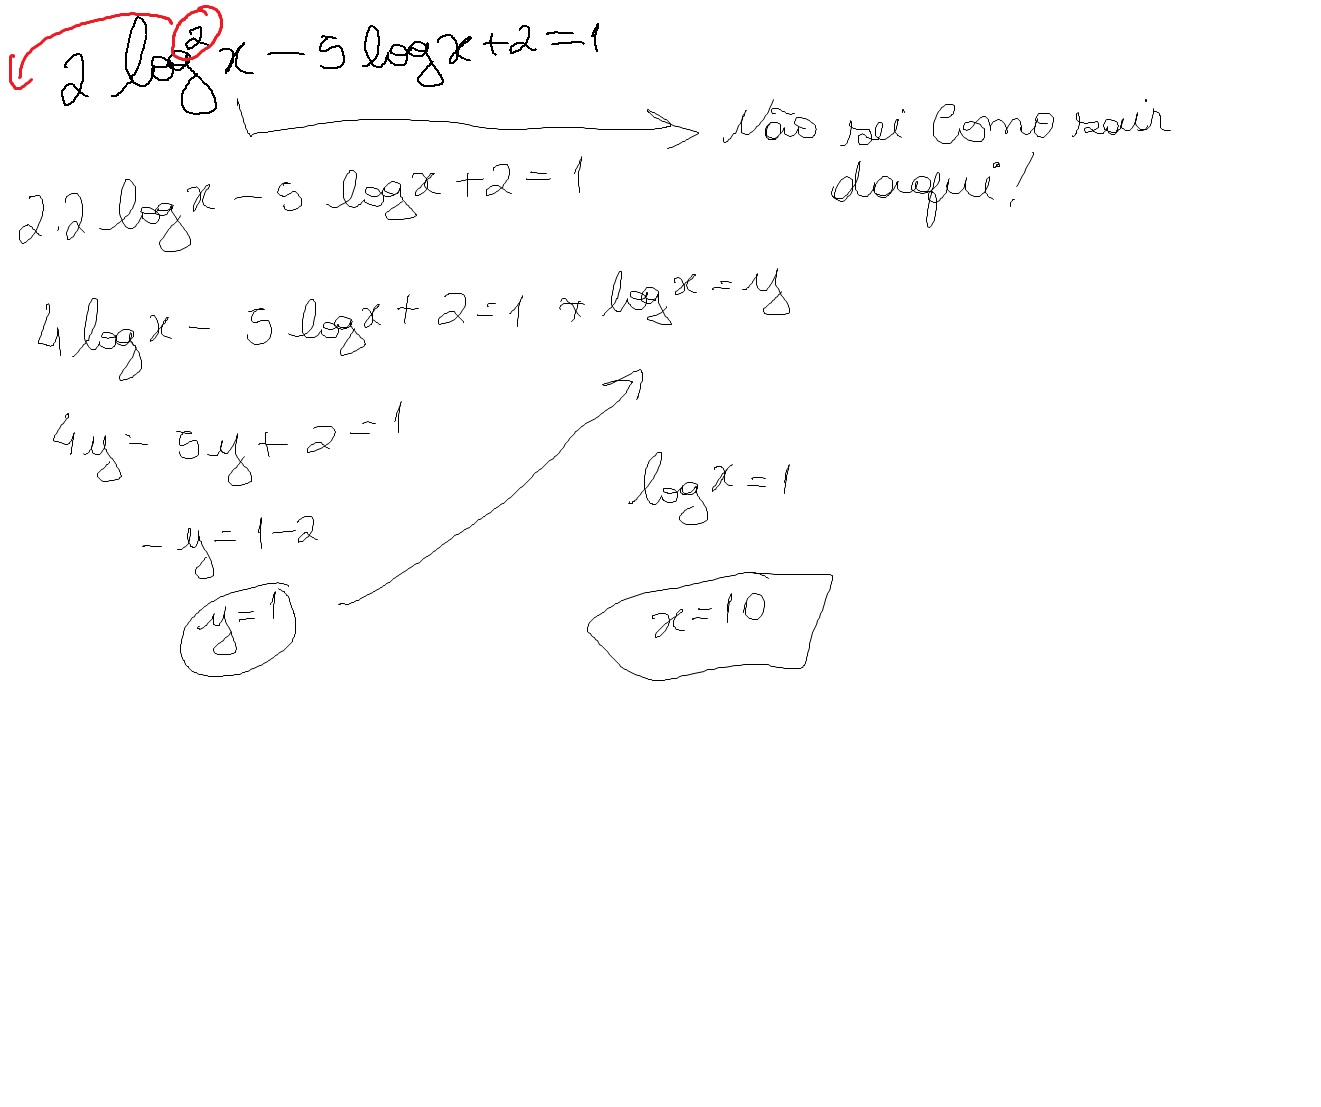 2 log² x - 5 log x + 2 = 1
Não sei como sair
daqui!
2.2 log x - 5 log x + 2 = 1
4 log x - 5 log x + 2 = 1 * log x = y
4y - 5y + 2 = 1
log x = 1
- y = 1 - 2
y = 1
x = 10